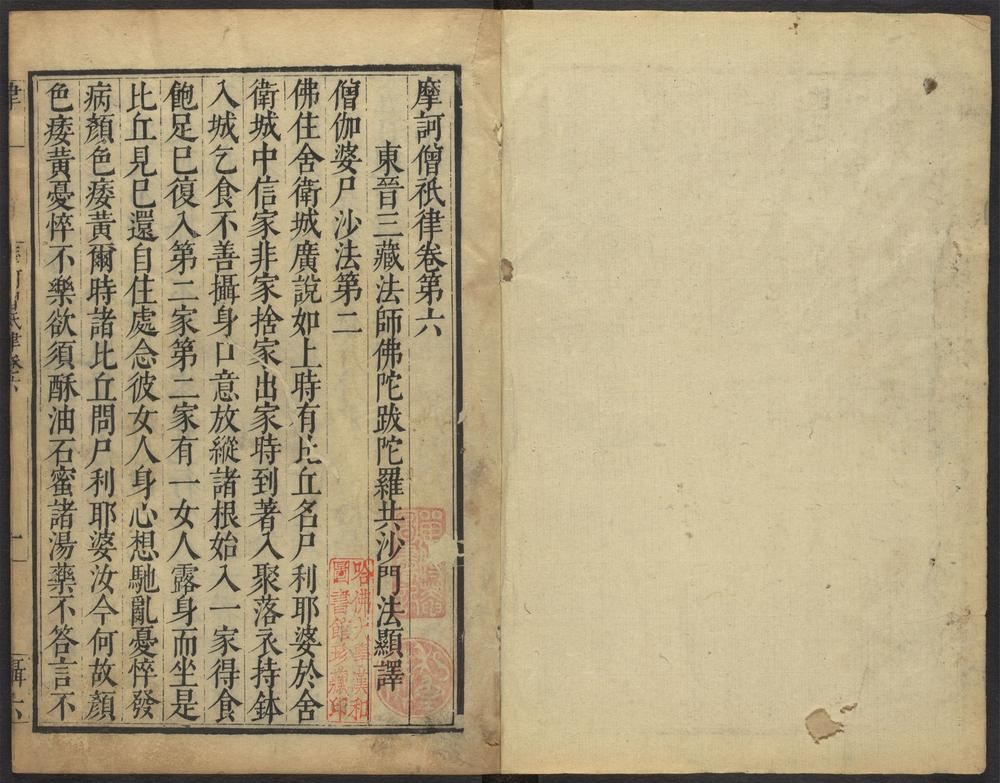 摩訶僧祇律卷第六
東晉三藏法師佛陀跋陀羅共沙門法顯譯
僧伽婆尸沙法第二
佛住舍衛城廣說如上時有比丘名尸利耶婆於舍
衛城中信家非家捨家出家時到著入聚落衣持鉢
入城乞食不善攝身口意放縱諸根始入一家得食
飽足巳復入第二家第二家有一女人露身而坐是
比丘見巳還自住處念彼女人身心想馳亂憂悴發
病顏色痿黃爾時諸比丘問尸利耶婆汝今何故顏
色痿黃憂悴不樂欲須酥油石蜜諸湯藥不答言不
哈佛大學漢和
圖書館珍藏印